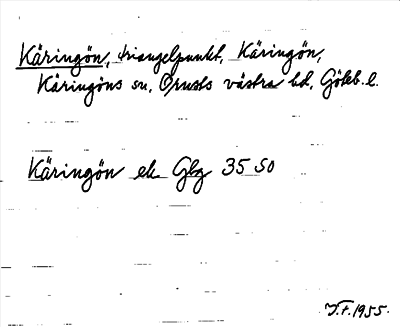 Käringön, triangelpunkt, Käringön,
Käringöns sn, Orusts västra hd, Göteb. l.
Käringön ek Gbg 35 SO
1955.